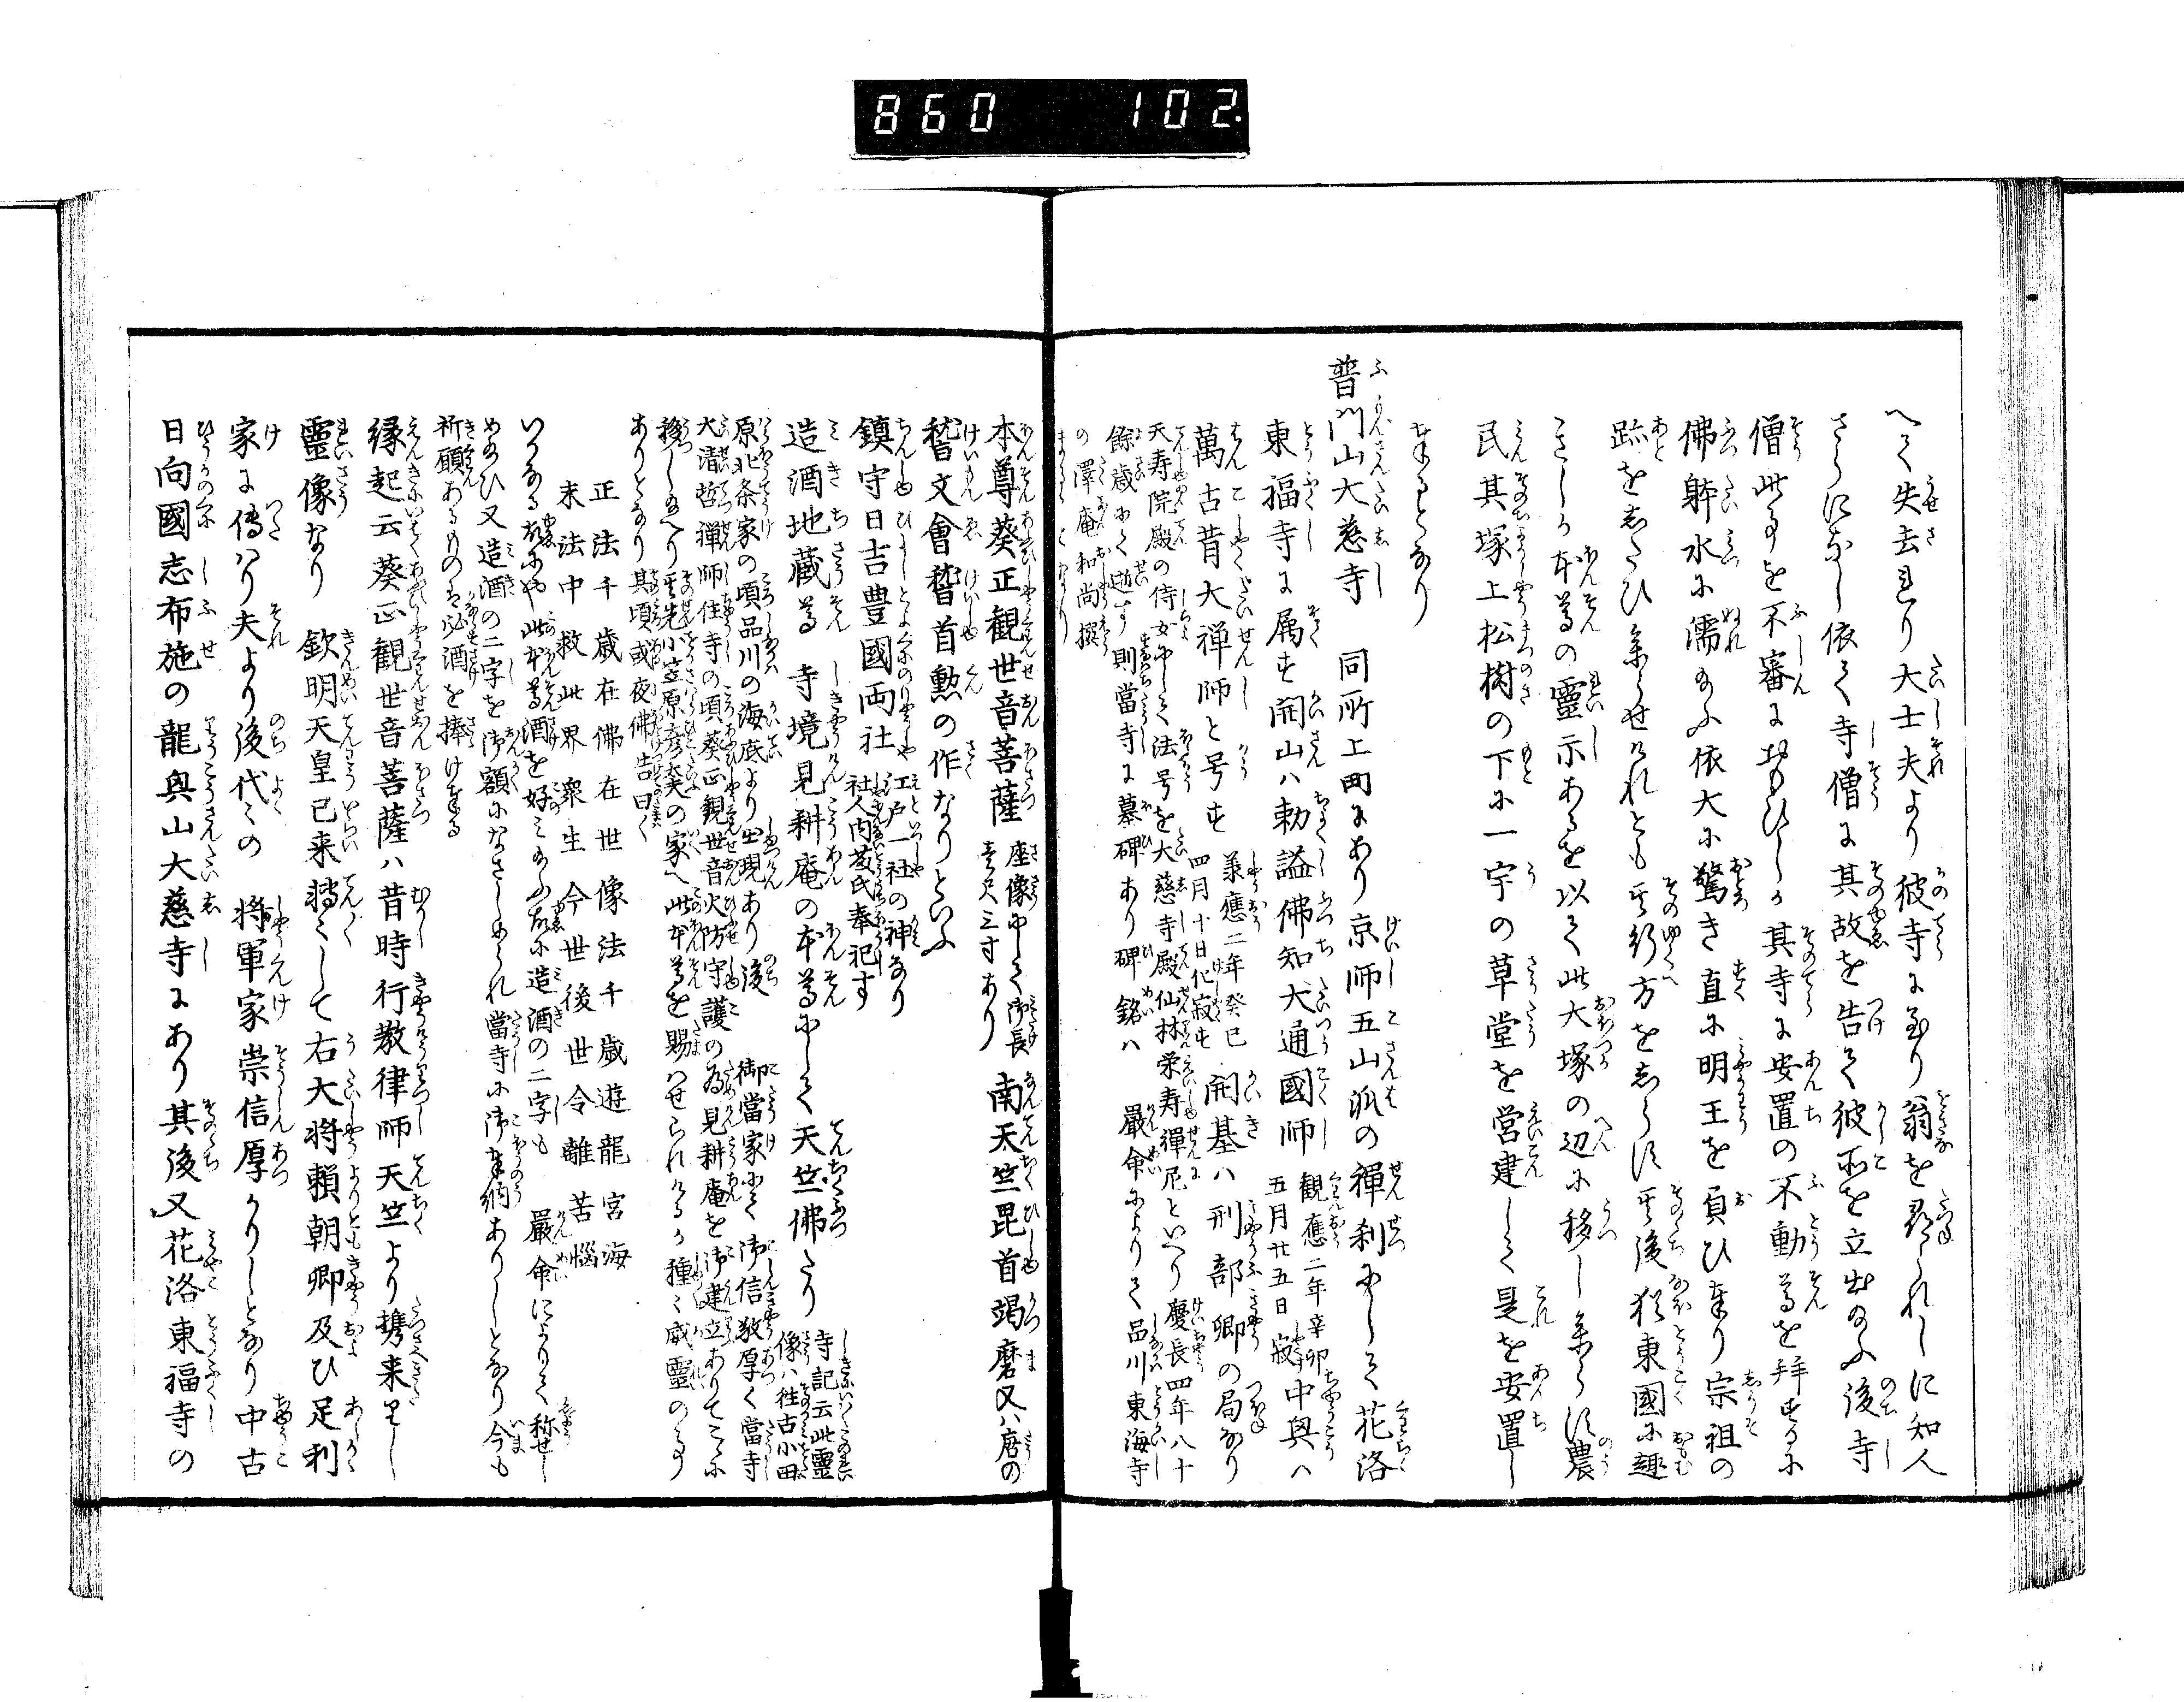 860 102.
へて失去れり大士夫より彼寺に至り翁を尋られしに知人
さらになし依て寺僧に其故を告て彼所を立出給ふ後寺
僧此事を不審に切おもひしか其寺に安置の不動尊を拝するに
佛躰水に濡給ふ依大に驚き直に明王を負ひ奉り宗祖の
跡をしたひ参らせけれとも其行方をしらす其後猶東國に趣
きしか本尊の靈示あるを以て此大塚の辺に移し参らす農
民其塚上松樹の下に一宇の草堂を営建して是を安置し
奉るとなり
普門山大慈寺 同所上町にあり京師五山派の禅刹にして花洛
東福寺に属す開山ハ勅謚佛知大通國師 観應二年辛卯五月廿五日寂 中興ハ
萬古昔大禅師と号す 承應二年癸巳四月十日化寂す 開基ハ刑部卿の局なり
天寿院殿の侍女にして法号を大慈寺殿仙林栄寿禅尼といへり慶長四年八十
餘歳にて逝す則當寺に墓碑あり碑銘ハ 嚴命によりて品川東海寺
の澤庵和尚撰
本尊葵正観世音菩薩 座像にして御長壱尺三寸あり 南天竺毘首羯磨又ハ唐の
稽文會稽首勲の作なりといふ
鎮守日吉豊國両社 江戸一社の神なり社人内義氏奉祀す
造酒地蔵尊 寺境見耕庵の本尊にして天竺佛なり 寺記云此靈像ハ往古小田
原北条家の頃品川の海底より出現あり後 御當家にて御信敬厚く當寺
大清哲禅師住寺の頃葵正観世音火防守護の為見耕庵を御建立ありてこゝに
移し給へり其先小笠原彦太夫の家へ此本尊を賜はせられけるか種々威靈の事
ありとなり其頃或夜佛告曰く
正法千歳在佛在世像法千歳遊龍宮海
末法中救此界衆生今世後世令離苦惱
いかなる故にや此本尊酒を好み給ふ故に造酒の二字も 嚴命によりて称せし
め給ひ又造酒の二字を御額になさしめられ當寺に御奉納ありしとなり今も
祈願あるものは必酒を捧け奉る
縁起云葵正観世音菩薩ハ昔時行教律師天竺より携来りし
靈像なり 欽明天皇已来轉々して右大将頼朝卿及ひ足利
家に傳ハり夫より後代々の 将軍家崇信厚かりしとなり中古
日向國志布施の龍興山大慈寺にあり其後又花洛東福寺の